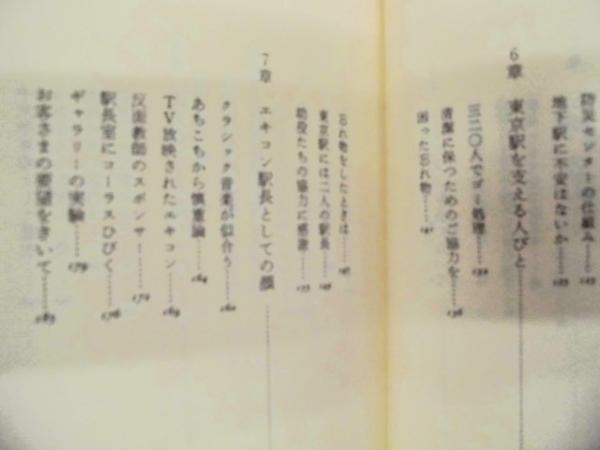 防災センターの仕組み……
地下駅に不安はないか……
6章 東京駅を支える人びと
三二〇人でゴミ処理……132
清潔に保つためのご協力を……136
困った忘れ物……141
忘れ物をしたときは……
東京駅には二人の駅長……
助役たちの協力に感謝……
7章 エキコン駅長としての顔
クラシック音楽が似合う……160
あちこちから慎重論……164
TV放映されたエキコン……169
反面教師のスポンサー……172
駅長室にコーラスひびく……176
ギャラリーの実験……179
お客さまの要望をきいて……183